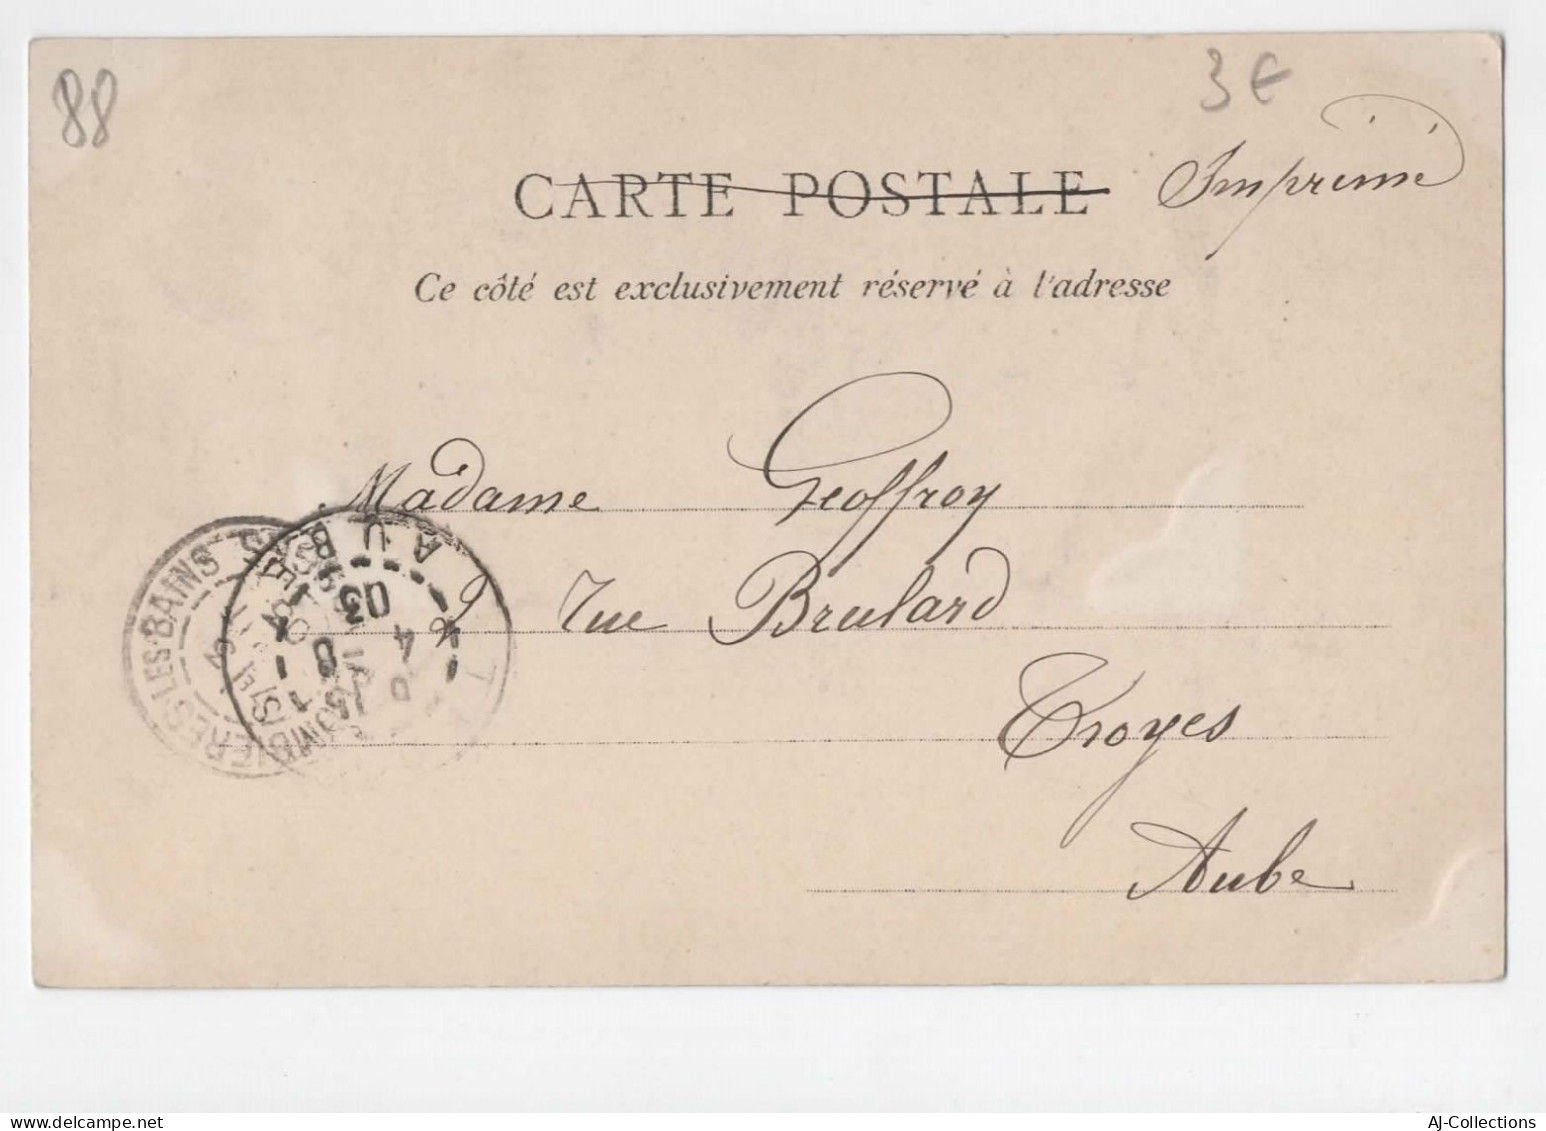 88
3 €
CARTE POSTALE
Imprimé
Ce côté est exclusivement réservé à l'adresse
Madame Geoffroy
9 rue Brulard
Troyes
Aube
PLOMBIERES-LES-BAINS
AUBE
15
03
AJ-Collections